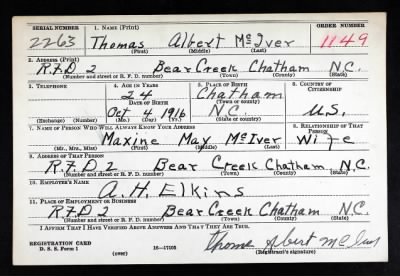 SERIAL NUMBER 1. NAME (Print) ORDER NUMBER
2263 Thomas Albert McIver 1149
(First) (Middle) (Last)
2. ADDRESS (Print)
R.F.D 2 Bear Creek Chatham N.C.
(Number and street or R. F. D. number) (Town) (County) (State)
3. TELEPHONE 4. AGE IN YEARS 5. PLACE OF BIRTH 6. COUNTRY OF CITIZENSHIP
24 Chatham
DATE OF BIRTH (Town or county)
Oct 4 1916 N C U.S.
(Exchange) (Number) (Mo.) (Day) (Yr.) (State or country)
7. NAME OF PERSON WHO WILL ALWAYS KNOW YOUR ADDRESS 8. RELATIONSHIP OF THAT PERSON
Maxine May McIver Wife
(Mr., Mrs., Miss) (First) (Middle) (Last)
9. ADDRESS OF THAT PERSON
R.F.D 2 Bear Creek Chatham, N.C.
(Number and street or R. F. D. number) (Town) (County) (State)
10. EMPLOYER'S NAME
A. H. Elkins
11. PLACE OF EMPLOYMENT OR BUSINESS
R.F.D 2 Bear Creek Chatham N.C.
(Number and street or R. F. D. number) (Town) (County) (State)
I AFFIRM THAT I HAVE VERIFIED ABOVE ANSWERS AND THAT THEY ARE TRUE.
REGISTRATION CARD
D. S. S. Form 1 16—17105 Thomas Albert McIver
(over) (Registrant's signature)